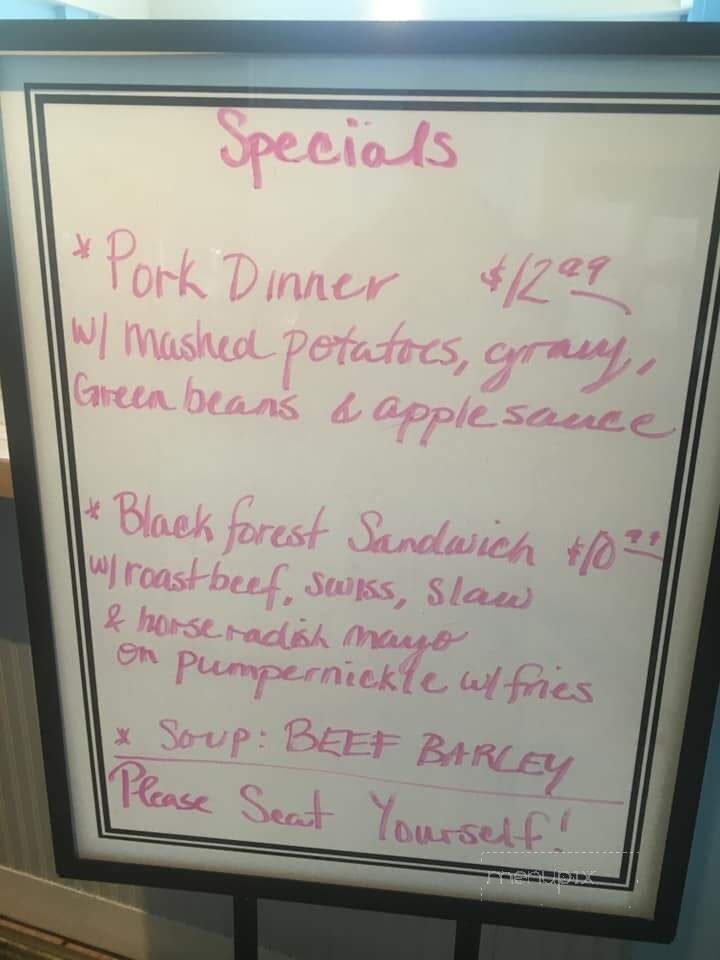 Specials
* Pork Dinner $12.99
w/ mashed potatoes, gravy,
Green beans & applesauce
* Black forest Sandwich $10.99
w/ roast beef, swiss, slaw
& horseradish mayo
on pumpernickle w/ fries
* Soup: BEEF BARLEY
Please Seat Yourself!
menupix